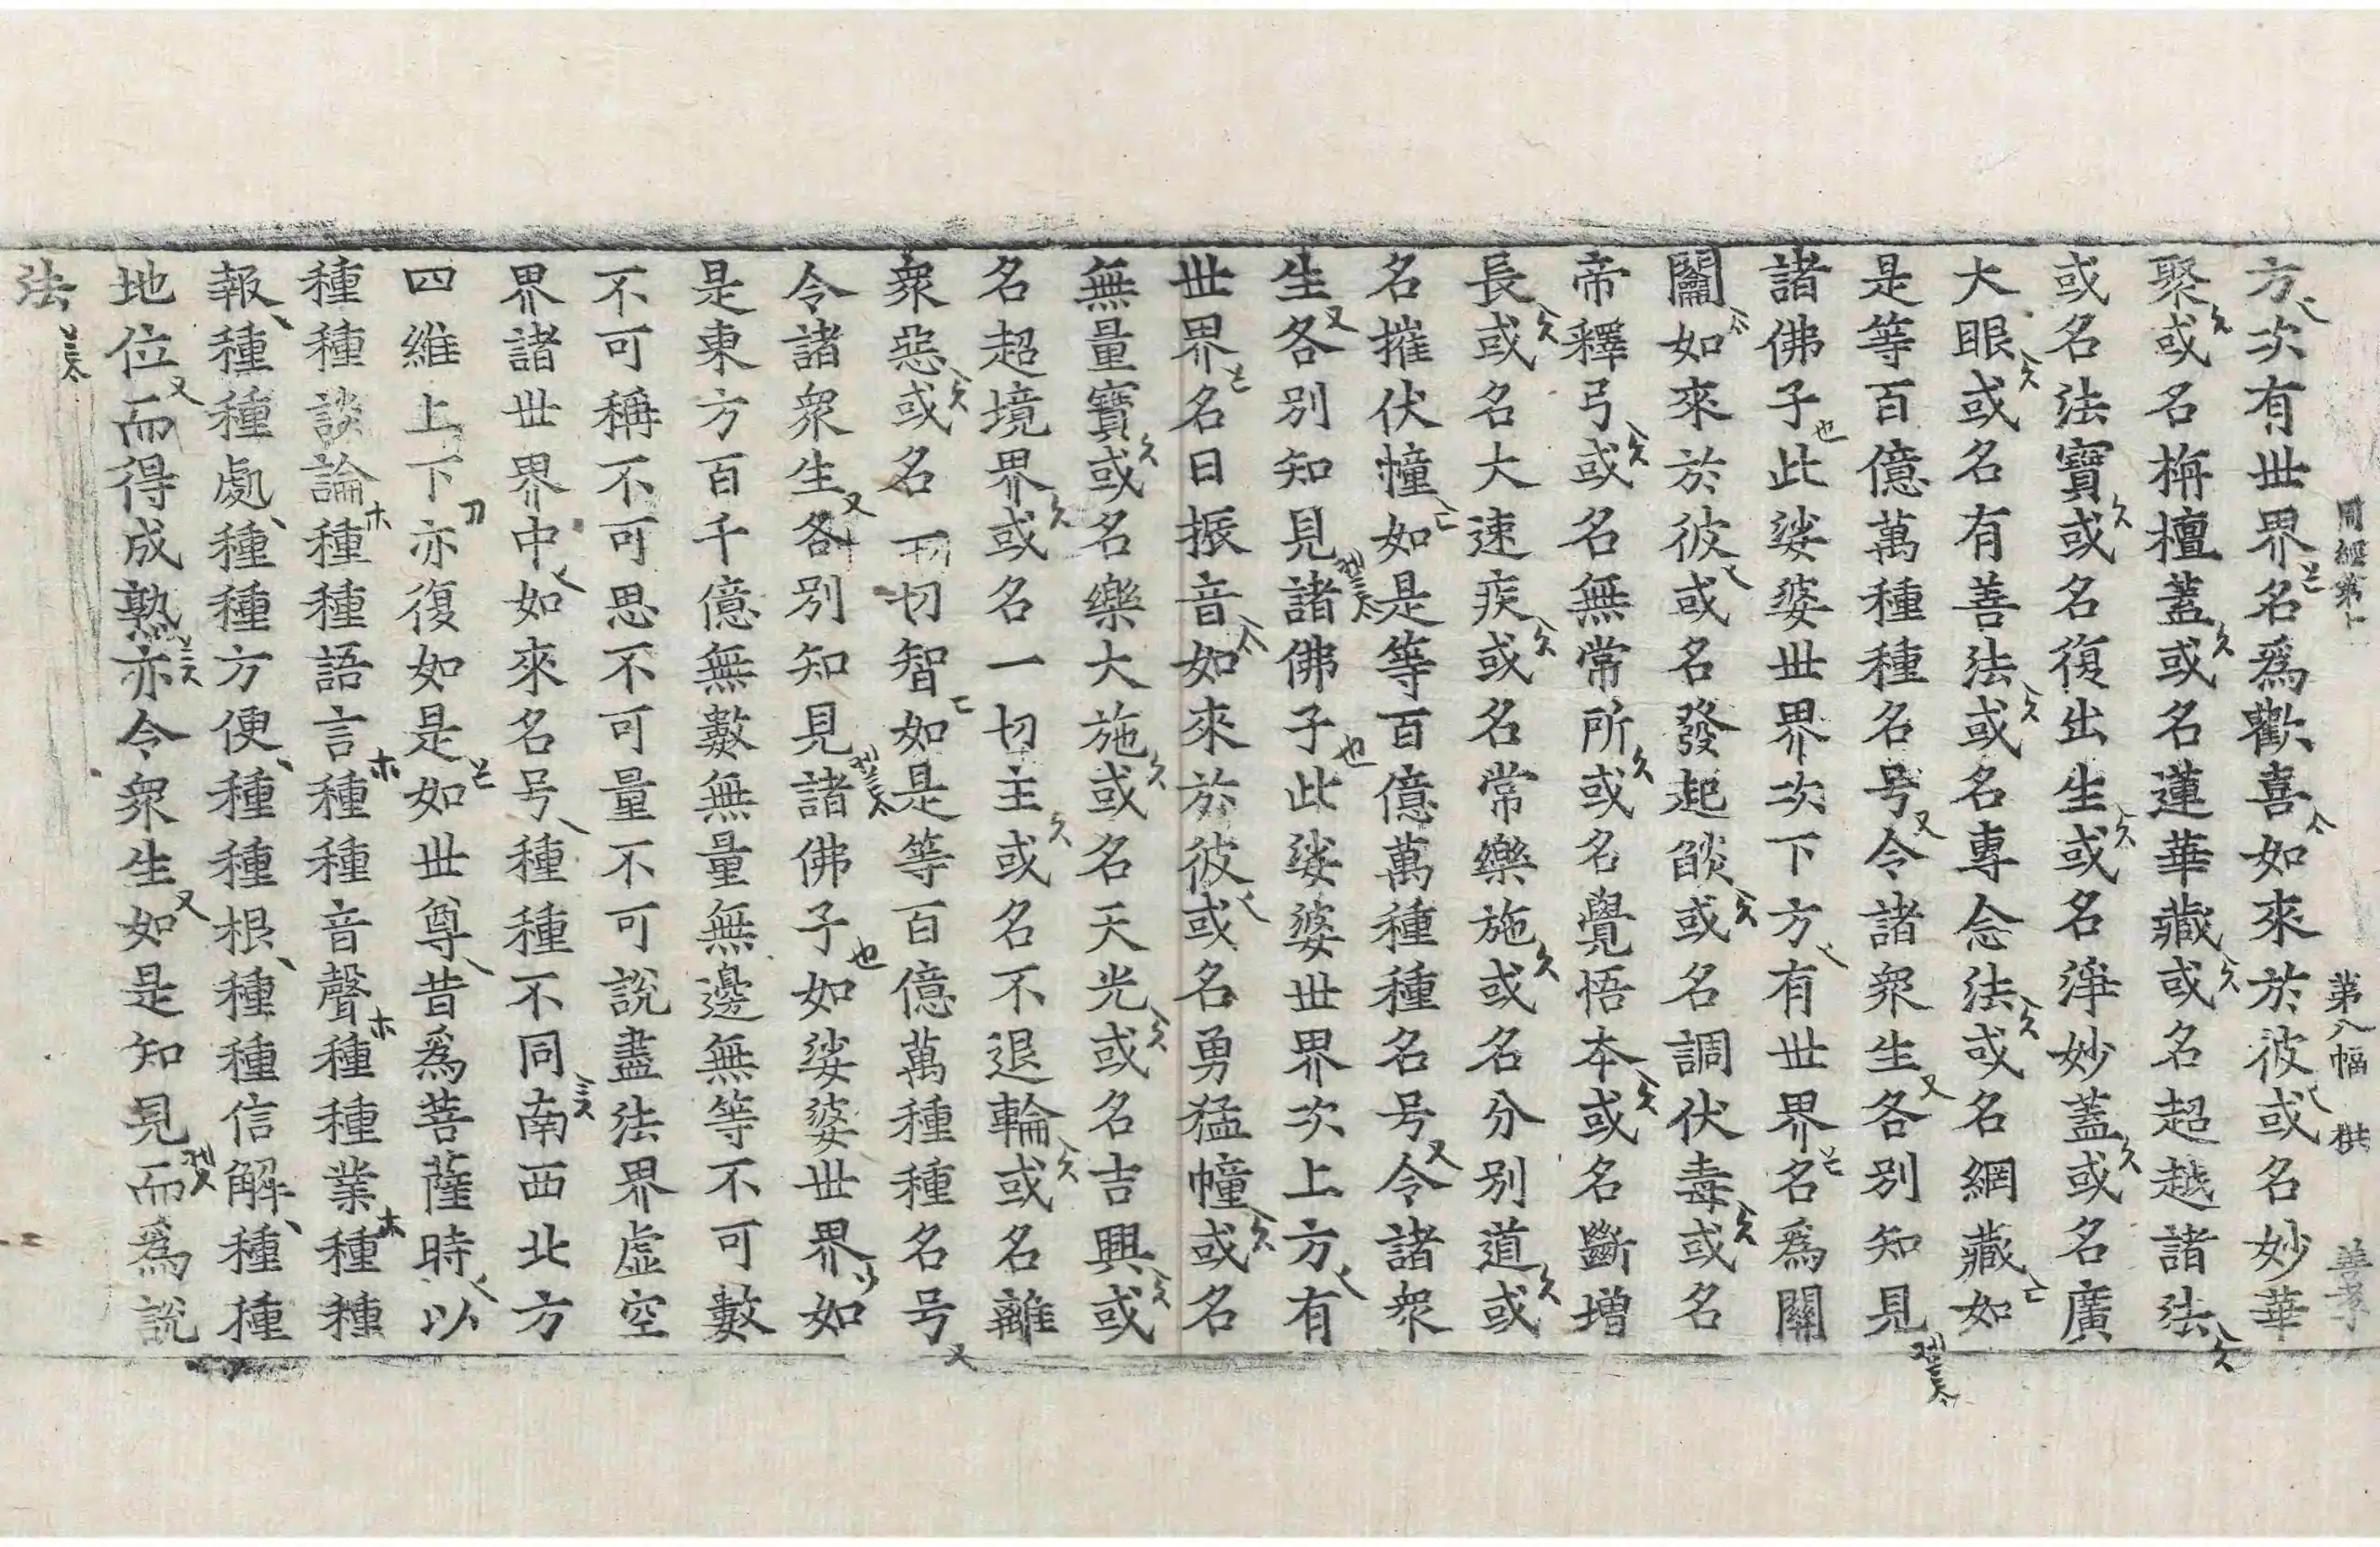 周經第 第八幅 拱 善孝
方次有世界名爲歡喜如來於彼或名妙華
聚或名栴檀蓋或名蓮華藏或名超越諸法
或名法寶或名復出生或名淨妙蓋或名廣
大眼或名有善法或名專念法或名網藏如
是等百億萬種種名号令諸衆生各別知見
諸佛子此娑婆世界次下方有世界名爲關
鬮如來於彼或名發起燄或名調伏毒或名
帝釋弓或名無常所或名覺悟本或名斷增
長或名大速疾或名常樂施或名分別道或
名摧伏幢如是等百億萬種種名号令諸衆
生各別知見諸佛子此娑婆世界次上方有
世界名曰振音如來於彼或名勇猛幢或名
無量寶或名樂大施或名天光或名吉興或
名超境界或名一切主或名不退輪或名離
衆惡或名一切智如是等百億萬種種名号
令諸衆生各別知見諸佛子如娑婆世界如
是東方百千億無數無量無邊無等不可數
不可稱不可思不可量不可說盡法界虛空
界諸世界中如來名号種種不同南西北方
四維上下亦復如是如世尊昔爲菩薩時以
種種談論種種語言種種音聲種種業種種
報種種處種種方便種種根種種信解種種
地位而得成熟亦令衆生如是知見而爲說
法